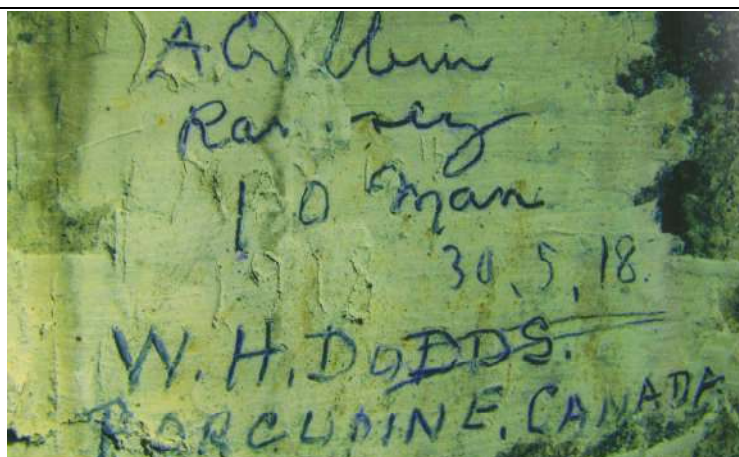 Ramsey
I O Man
30.5.18.
W.H. DODDS.
PORCUPINE, CANADA